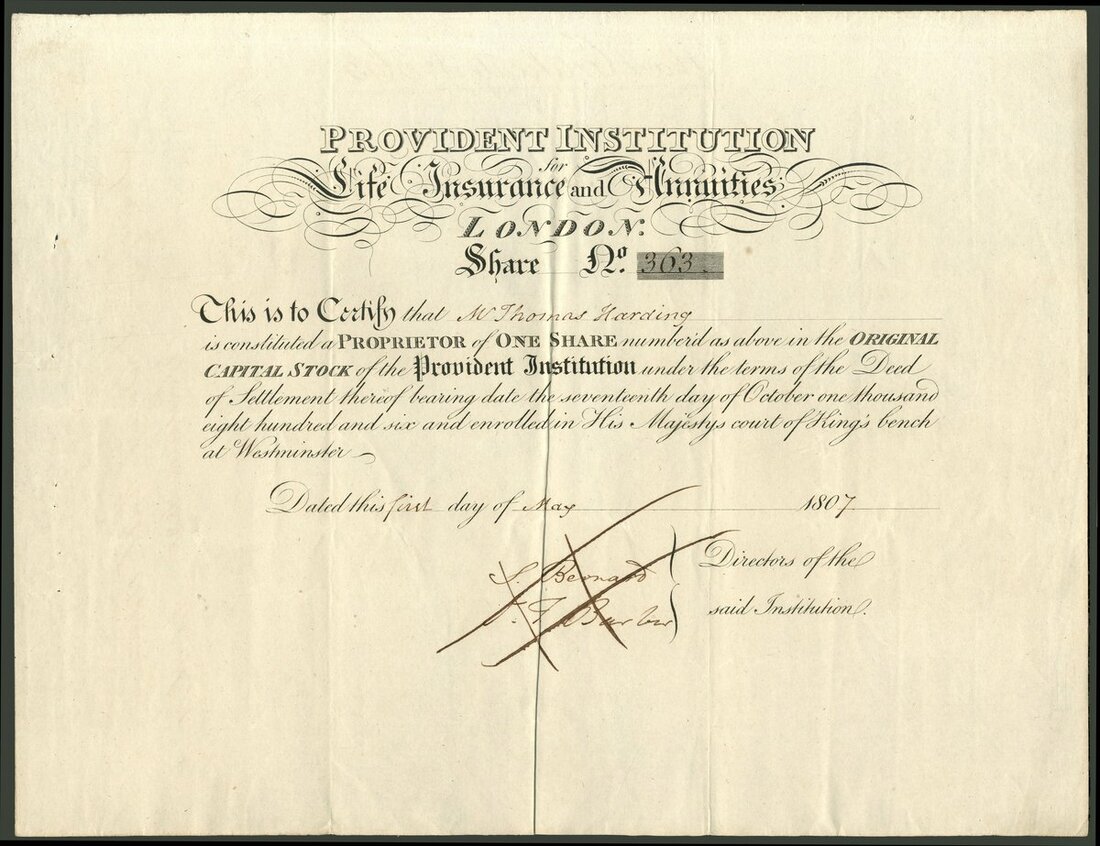 PROVIDENT INSTITUTION
for
Life Insurance and Annuities
LONDON.
Share No. 363
This is to Certify that Mr Thomas Harding
is constituted a PROPRIETOR of ONE SHARE number'd as above in the ORIGINAL
CAPITAL STOCK of the Provident Institution under the terms of the Deed
of Settlement thereof bearing date the seventeenth day of October one thousand
eight hundred and six and enrolled in His Majestys court of King's bench
at Westminster
Dated this first day of May 1807
S. Bernard
Directors of the
J. F. Barber
said Institution.